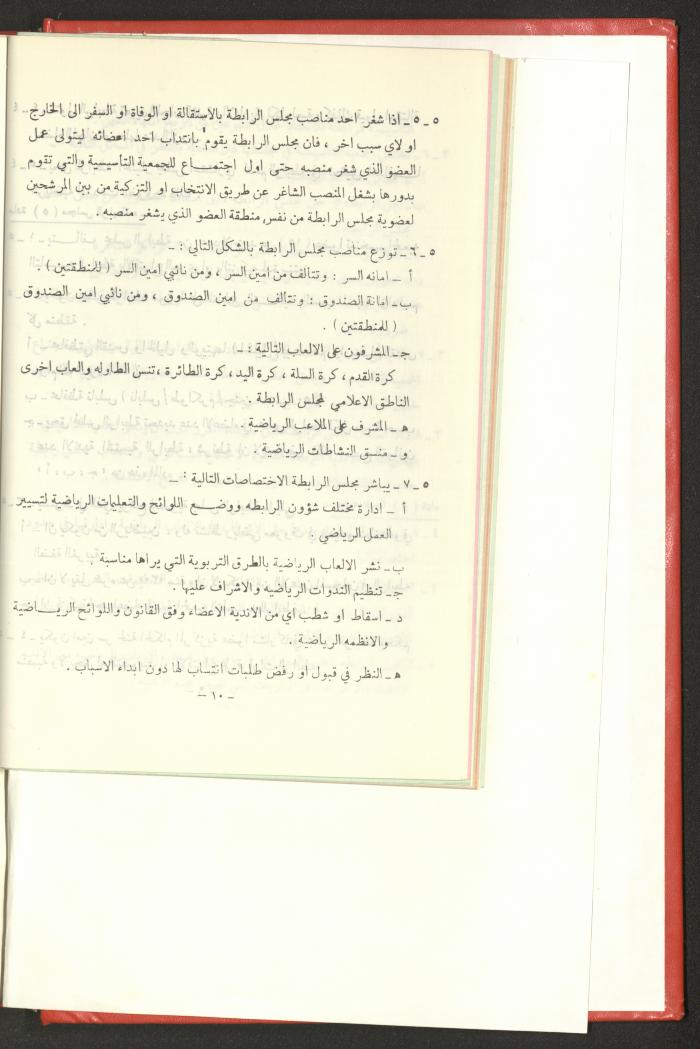 ٥ ـ ٥ ـ اذا شغر احد مناصب مجلس الرابطة بالاستقالة او الوفاة او السفر الى الخارج
او لاي سبب اخر ، فان مجلس الرابطة يقوم بانتداب احد اعضائه ليتولى عمل
العضو الذي شغر منصبه حتى اول اجتمـــاع للجمعية التأسيسية والتي تقوم
بدورها بشغل المنصب الشاغر عن طريق الانتخاب او التزكية من بين المرشحين
لعضوية مجلس الرابطة من نفس منطقة العضو الذي يشغر منصبه .
٥ ـ ٦ ـ توزع مناصب مجلس الرابطة بالشكل التالي : ـ
أ ـ امانه السر : وتتألف من امين السر ، ومن نائبي امين السر ( للمنطقتين ) .
ب ـ امانة الصندوق : وتتألف من امين الصندوق ، ومن نائبي امين الصندوق
( للمنطقتين ) .
جـ ـ المشرفون على الالعاب التالية : ـ
كرة القدم ، كرة السلة ، كرة اليد ، كرة الطائرة ، تنس الطاوله والعاب اخرى
الناطق الاعلامي لمجلس الرابطة .
هـ ـ المشرف على الملاعب الرياضية .
و ـ منسق النشاطات الرياضية .
٥ ـ ٧ ـ يباشر مجلس الرابطة الاختصاصات التالية : ـ
أ ـ ادارة مختلف شؤون الرابطه ووضـــع اللوائح والتعليمات الرياضية لتسيير
العمل الرياضي .
ب ـ نشر الالعاب الرياضية بالطرق التربوية التي يراها مناسبة .
جـ ـ تنظيم الندوات الرياضيه والاشراف عليها .
د ـ اسقاط او شطب اي من الاندية الاعضاء وفق القانون واللوائح الريـــاضية
والانظمه الرياضية .
هـ ـ النظر في قبول او رفض طلبات انتساب لها دون ابداء الاسباب .
ـ ١٠ ـ